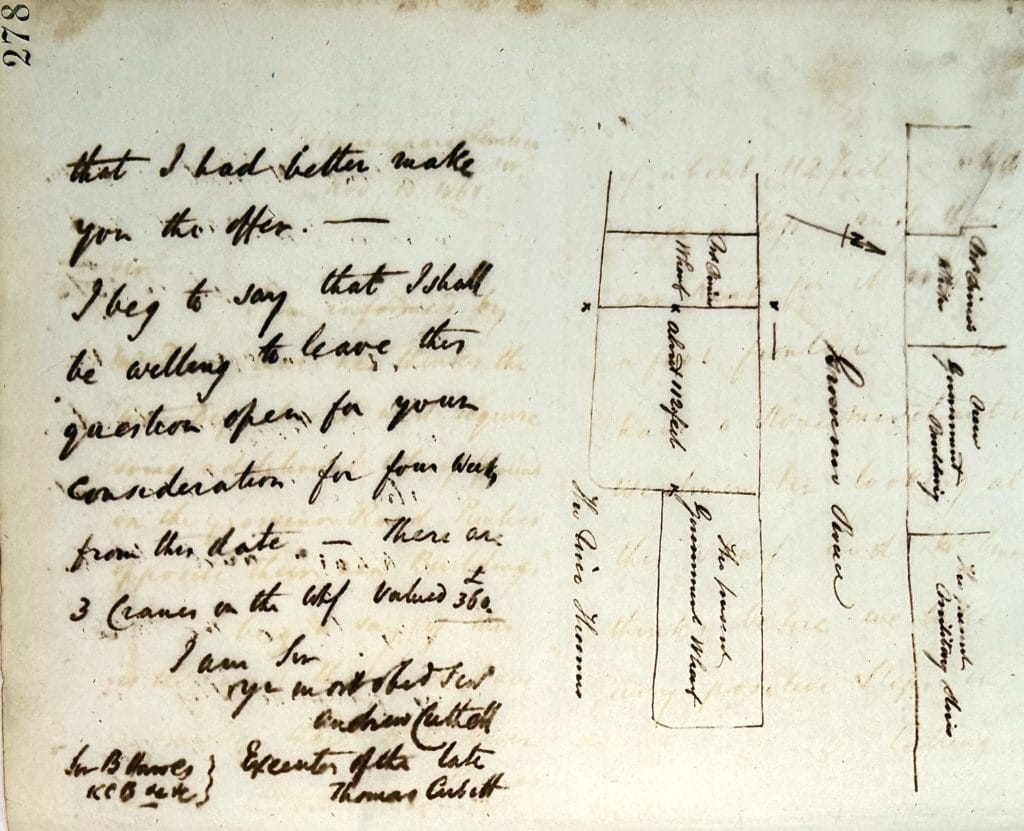 278
that I had better make
you the offer. —
I beg to say that I shall
be willing to leave this
question open for your
consideration for four Weeks
from this date. — There are
3 Cranes on the Whf valued £360.
I am Sir
yr most obed Ser
Andrew Cuttell
Executor of the late
Thomas Cubitt
Sir B Hawes
KCB &c &c
Wharf
x about 112 feet x
The present
Government Wharf
The River Thames
Grosvenor Road
New
Government
Building
The present
Military Stores